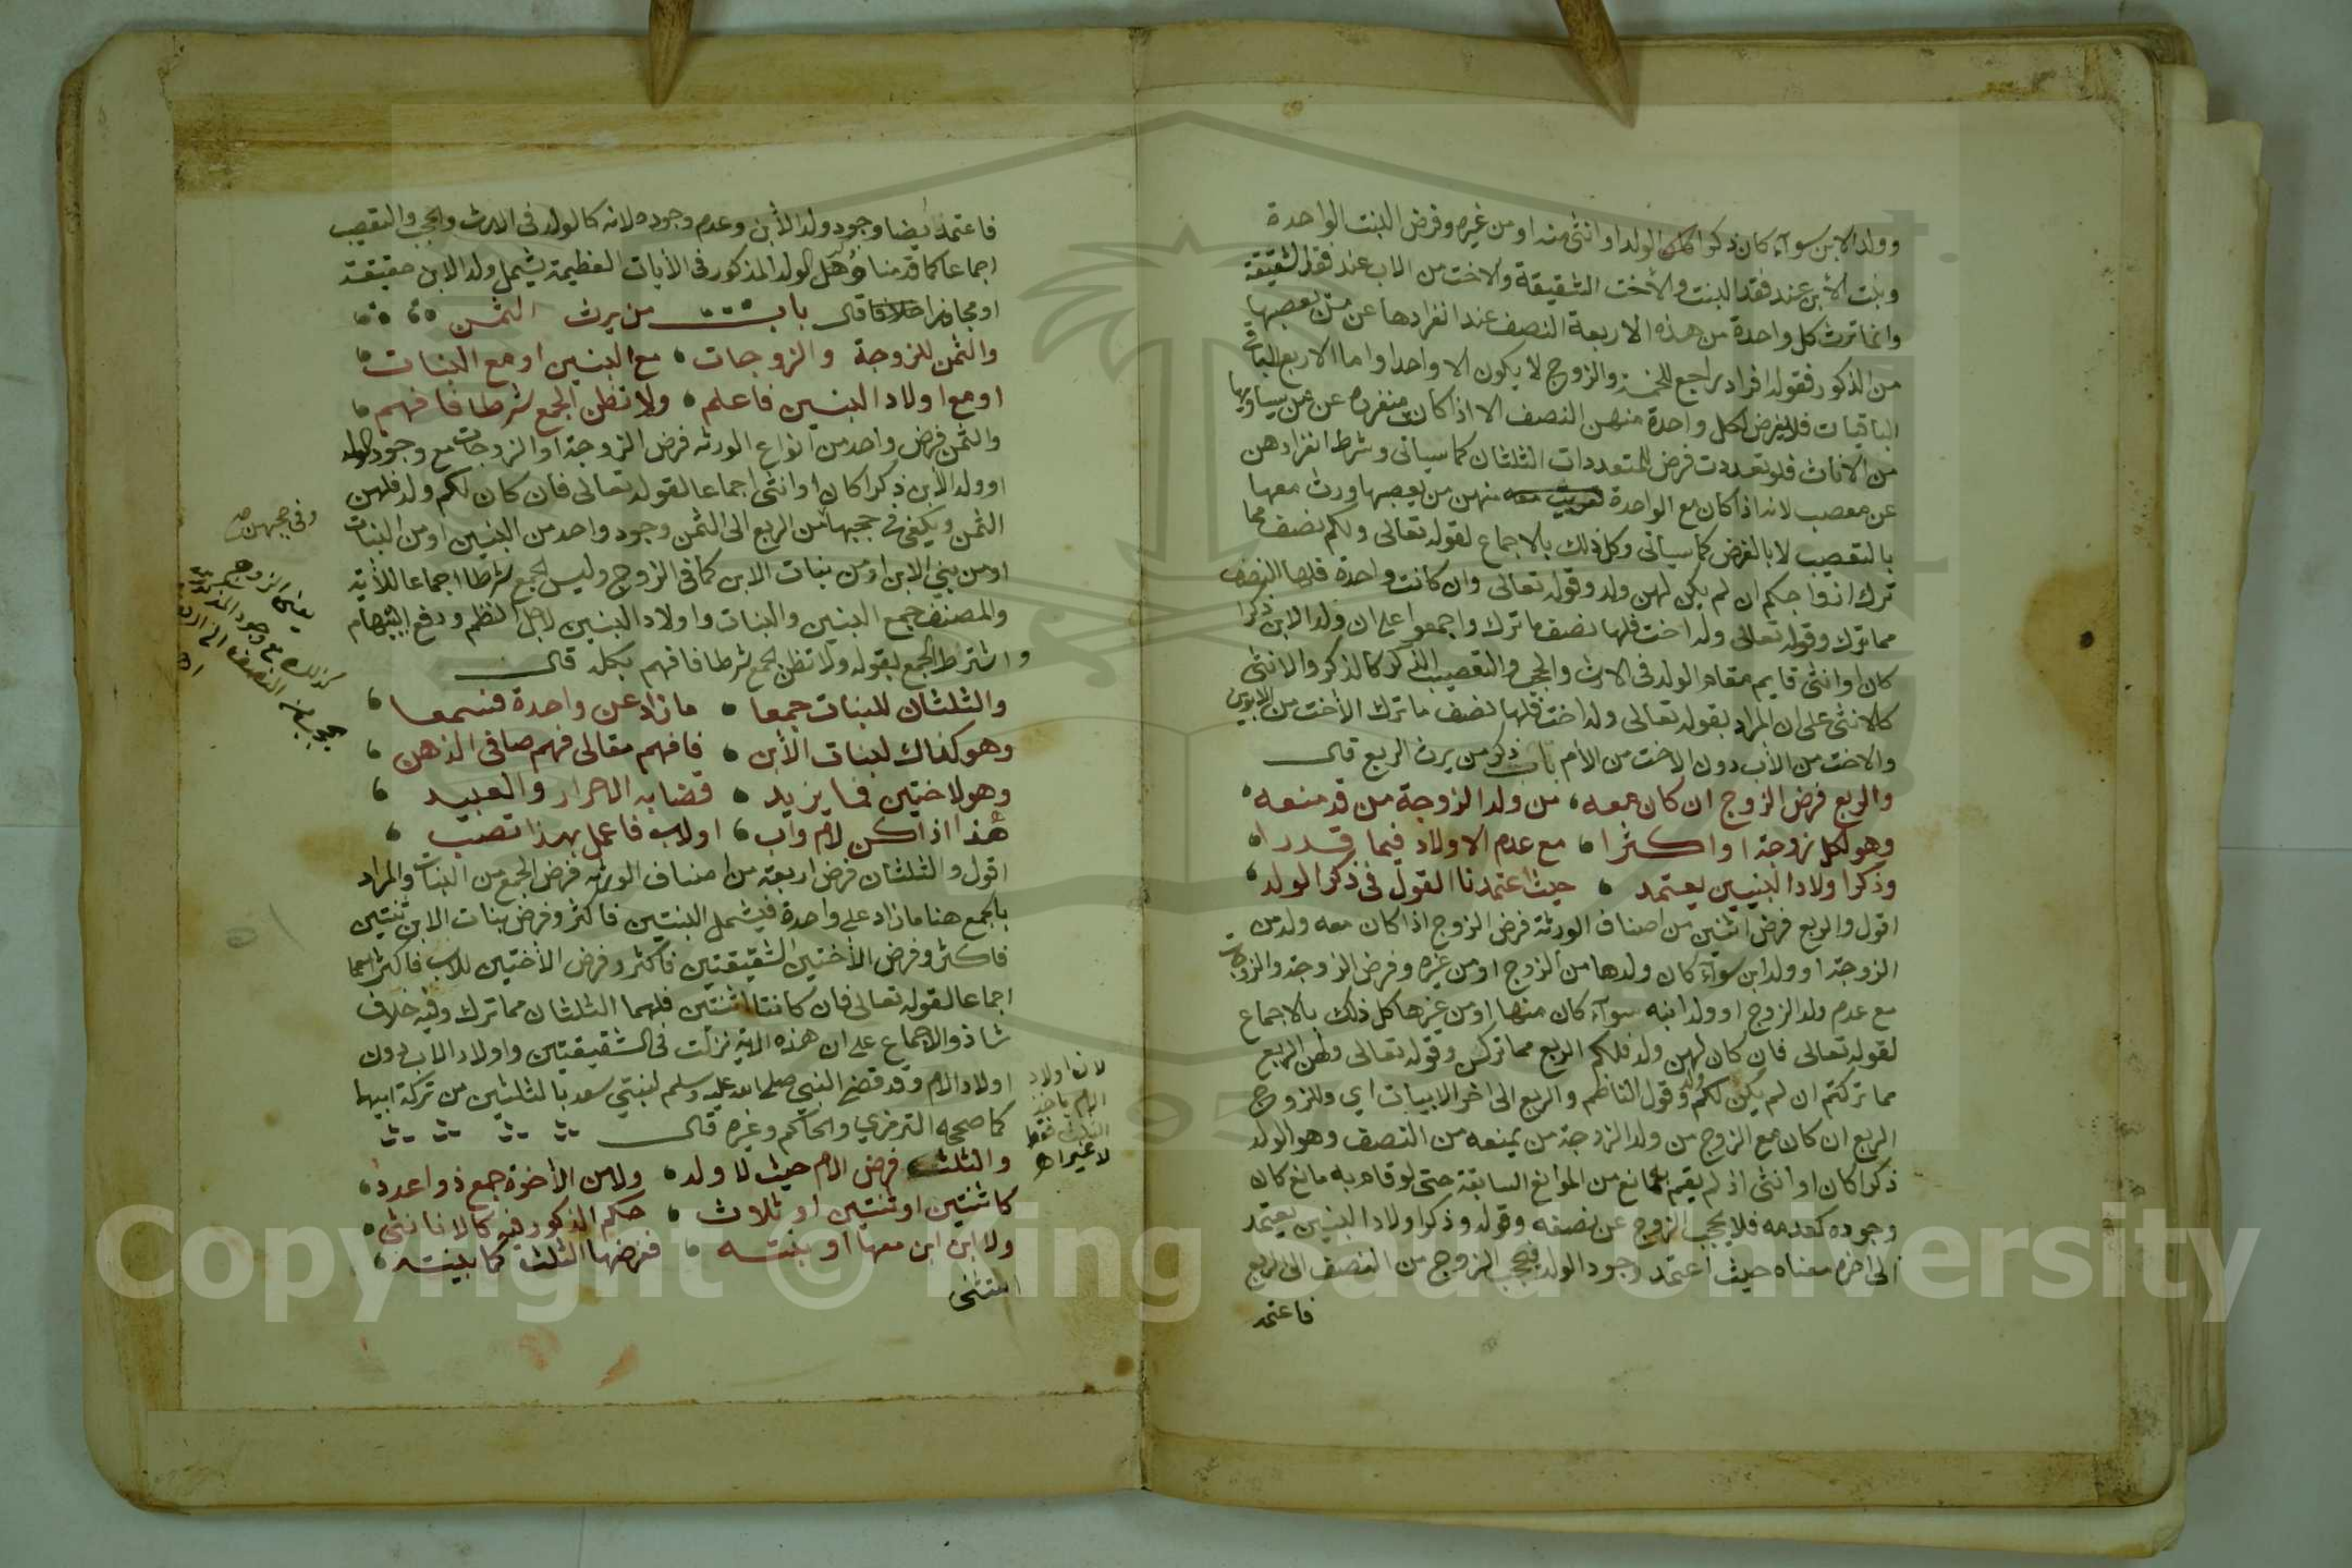 وولد الابن سوآء كان ذكرا كان الولد او انثى منه او من غيره وفرض البنت الواحدة
وبنت الابن عند فقد البنت والأخت الشقيقة والاخت من الاب عند فقد الشقيقة
وانما ترث كل واحدة من هذه الاربعة النصف عند انفرادها عن من يعصبها
من الذكور فقوله افراد راجع للخمسة والزوج لا يكون الا واحدا واما الاربع
الباقيات فلا يفرض لكل واحدة منهن النصف الا اذا كان منفردة عن من يساويها
من الاناث فلو تعددت فرض للمتعددات الثلثان كما سياتى وشرط انفرادهن
عن معصب لانه اذا كان مع الواحدة منهن من يعصبها ورث معها
بالتعصيب لا بالفرض كما سياتى وكل ذلك بالاجماع لقوله تعالى ولكم نصف ما
ترك ازواجكم ان لم يكن لهن ولد وقوله تعالى وان كانت واحدة فلها النصف
مما ترك وقوله تعالى وله اخت فلها نصف ما ترك واجمعوا على ان ولد الابن ذكرا
كان او انثى قايم مقام الولد فى الارث والحجب والتعصيب الذكر كالذكر والانثى
كالانثى على ان المراد بقوله تعالى وله اخت فلها نصف ما ترك الأخت من الابوين
والاخت من الأب دون الاخت من الأم باب ذكر من يرث الربع قال
والربع فرض الزوج ان كان معه من ولد الزوجة من قد منعه
وهو لكل زوجة او اكثرا مع عدم الاولاد فيما قدرا
وذكر اولاد البنين يعتمد حيث اعتمدنا القول فى ذكر الولد
اقول والربع فرض اثنين من اصناف الورثة فرض الزوج اذا كان معه ولد من
الزوجة او ولد ابن سوآء كان ولدها من الزوج او من غيره وفرض الزوجة والزوجات
مع عدم ولد الزوج او ولد ابنه سوآء كان منها او من غيرها كل ذلك بالاجماع
لقوله تعالى فان كان لهن ولد فلكم الربع مما تركن وقوله تعالى ولهن الربع
مما تركتم ان لم يكن لكم ولد وقول الناظم والربع الى اخر الابيات اي وللزوج
الربع ان كان مع الزوج من ولد الزوجة من يمنعه من النصف وهو الولد
ذكرا كان او انثى اذ لم يقم به مانع من الموانع السابقة حتى لو قام به مانع كان
وجوده كعدمه فلا يحجب الزوج عن نصفه وقوله وذكر اولاد البنين يعتمد
الى اخره معناه حيث اعتمد وجود الولد فى حجب الزوج من النصف الى الربع
فاعتمد
فاعتمد ايضا وجود ولد الأبن وعدم وجوده لانه كالولد فى الارث والحجب والتعصيب
اجماعا كما قدمنا وهل الولد المذكور فى الأيات العظيمة يشمل ولد الابن حقيقة
او مجازا خلاف قال باب من يرث الثمن
والثمن للزوجة والزوجات مع البنين او مع البنات
او مع اولاد البنين فاعلم ولا تظن الجمع شرطا فافهم
والثمن فرض واحد من انواع الورثه فرض الزوجة او الزوجات مع وجود الولد
او ولد الأبن ذكرا كان او انثى اجماعا لقوله تعالى فان كان لكم ولد فلهن
الثمن ويكفى فى حجبها من الربع الى الثمن وجود واحد من البنين او من البنات
او من بني الابن او من بنات الابن كما فى الزوج وليس الجمع شرطا اجماعا للأية
والمصنف جمع البنين والبنات واولاد البنين لاجل النظم ودفع ايهام
واشترط الجمع بقوله ولا تظن الجمع شرطا فافهم بكله قال
والثلثان للبنات جمعا ما زاد عن واحدة فسمعا
وهو كذاك لبنات الأبن فافهم مقالى فهم صافى الذهن
وهو لاختين فما يزيد قضا به الاحرار والعبيد
هذا اذا كن لام واب او لاب فاعمل بهذا تصب
اقول والثلثان فرض اربعة من اصناف الورثه فرض الجمع من البنات والمراد
بالجمع هنا ما زاد على واحدة فيشمل البنتين فاكثر وفرض بنات الابن ثنتين
فاكثر وفرض الأختين الشقيقتين فاكثر وفرض الأختين للاب فاكثر
اجماعا لقوله تعالى فان كانتا اثنتين فلهما الثلثان مما ترك وفيه خلاف
شاذ والاجماع على ان هذه الاية نزلت فى الشقيقتين واولاد الاب دون
اولاد الام وقد قضى النبي صلى الله عليه وسلم لبنتي سعد بالثلثين من تركة ابيهما
كما صححه الترمذي والحاكم وغيره قال
والثلث فرض الام حيث لا ولد ولا من الأخوة جمع ذو اعدد
كاثنتين او ثنتين او ثلاث حكم الذكور فيه كالاناث
ولا ابن ابن معها او بنته ففرضها الثلث كما بينته
وفى حجبهن
يعنى الزوج
كذلك مع وجود
لان اولاد
الام ياخذ
الثلث فقط
لا غير اه